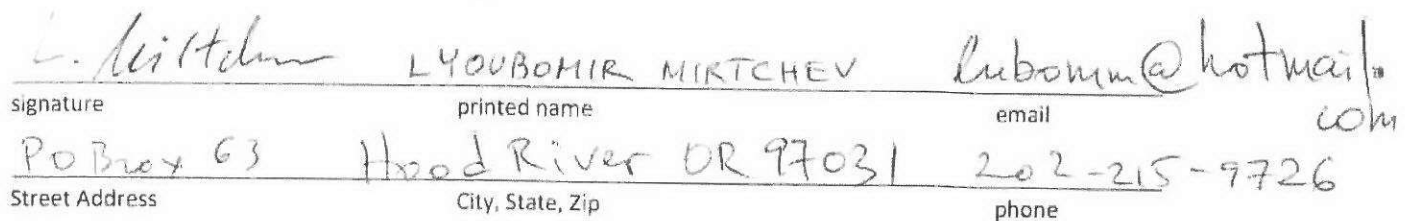 L. Mirtchev LYOUBOMIR MIRTCHEV lubomm@hotmail.com
signature printed name email
PO Box 63 Hood River OR 97031 202-215-9726
Street Address City, State, Zip phone